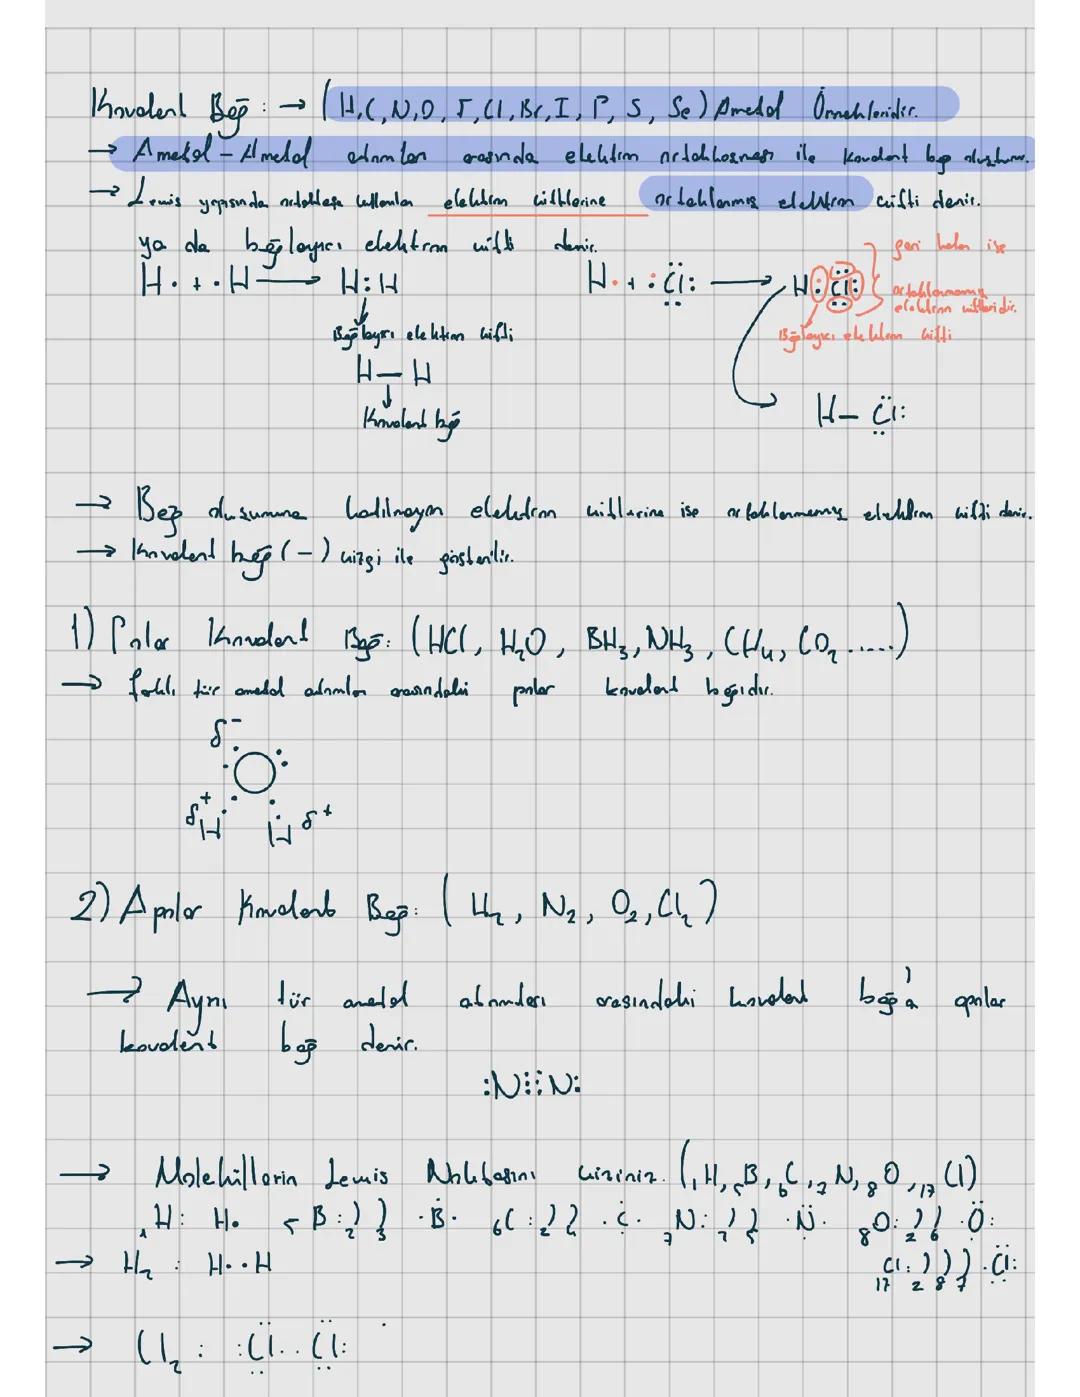 Kovalent Bağ : → (H, C, N, O, F, Cl, Br, I, P, S, Se) Ametal Örnekleridir.
→ Ametal - Ametal atomları arasında elektron ortaklaşması ile kovalent bağ oluşturur.
→ Lewis yapısında ortaklaşa kullanılan elektron çiftlerine ortaklanmış elektron çifti denir.
ya da bağlayıcı elektron çifti denir.
H· + ·H → H:H
Bağlayıcı elektron çifti
H — H
Kovalent bağ
H· + :Cl: → H:Cl:
geri kalan ise
ortaklanmamış
elektron çiftleridir.
Bağlayıcı elektron çifti
H — Cl:
→ Bağ oluşumuna katılmayan elektron çiftlerine ise ortaklanmamış elektron çifti denir.
→ Kovalent bağ (-) çizgi ile gösterilir.
1) Polar Kovalent Bağ: (HCl, H₂O, BH₃, NH₃, CH₄, CO₂ .....)
→ farklı tür ametal atomları arasındaki polar kovalent bağıdır.
δ⁻
O
δ⁺ H H δ⁺
2) Apolar Kovalent Bağ: (H₂, N₂, O₂, Cl₂)
→ Aynı tür ametal atomları arasındaki kovalent bağ'a apolar
kovalent bağ denir.
:N⋮⋮N:
→ Moleküllerin Lewis Noktasını çiziniz. (₁H, ₅B, ₆C, ₇N, ₈O, ₁₇Cl)
₁H: H· ₅B: ) ) 2 3 ·B· ₆C: ) ) 2 4 ·C· ₇N: ) ) 2 5 ·N· ₈O: ) ) 2 6 ·O:
→ H₂ : H··H ₁₇Cl: ) ) ) 2 8 7 ·Cl:
→ Cl₂ : :Cl··Cl: